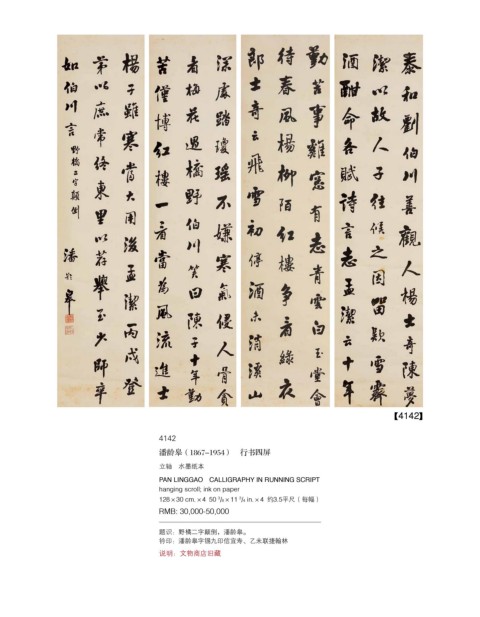 泰和劉伯川善觀人楊士奇陳夢
潔以故人子往候之因留飲雪霽
酒酣命各賦詩言志孟潔云十年
勤苦事雞窓有志青雲白玉堂會
待春風楊柳陌紅樓爭看綠衣
郎士奇云飛雪初停酒未消溪山
深處踏瓊瑤不嫌寒氣侵人骨貪
看梅花過橋野伯川笑曰陳子十年勤
苦僅博紅樓一看當為風流進士
楊子雖寒當大用後孟潔丙戌登
第以庶常終東里以荐舉至少師卒
如伯川言 野橋二字顛倒 潘齡皋
【4142】
4142
潘龄皋（1867-1954） 行书四屏
立轴 水墨纸本
PAN LINGGAO CALLIGRAPHY IN RUNNING SCRIPT
hanging scroll; ink on paper
128×30 cm.×4 50 3/8×11 3/4 in.×4 约3.5平尺（每幅）
RMB: 30,000-50,000
题识：野橋二字颠倒，潘龄皋。
钤印：潘龄皋字锡九印信宜寿、乙未联捷翰林
说明：文物商店旧藏